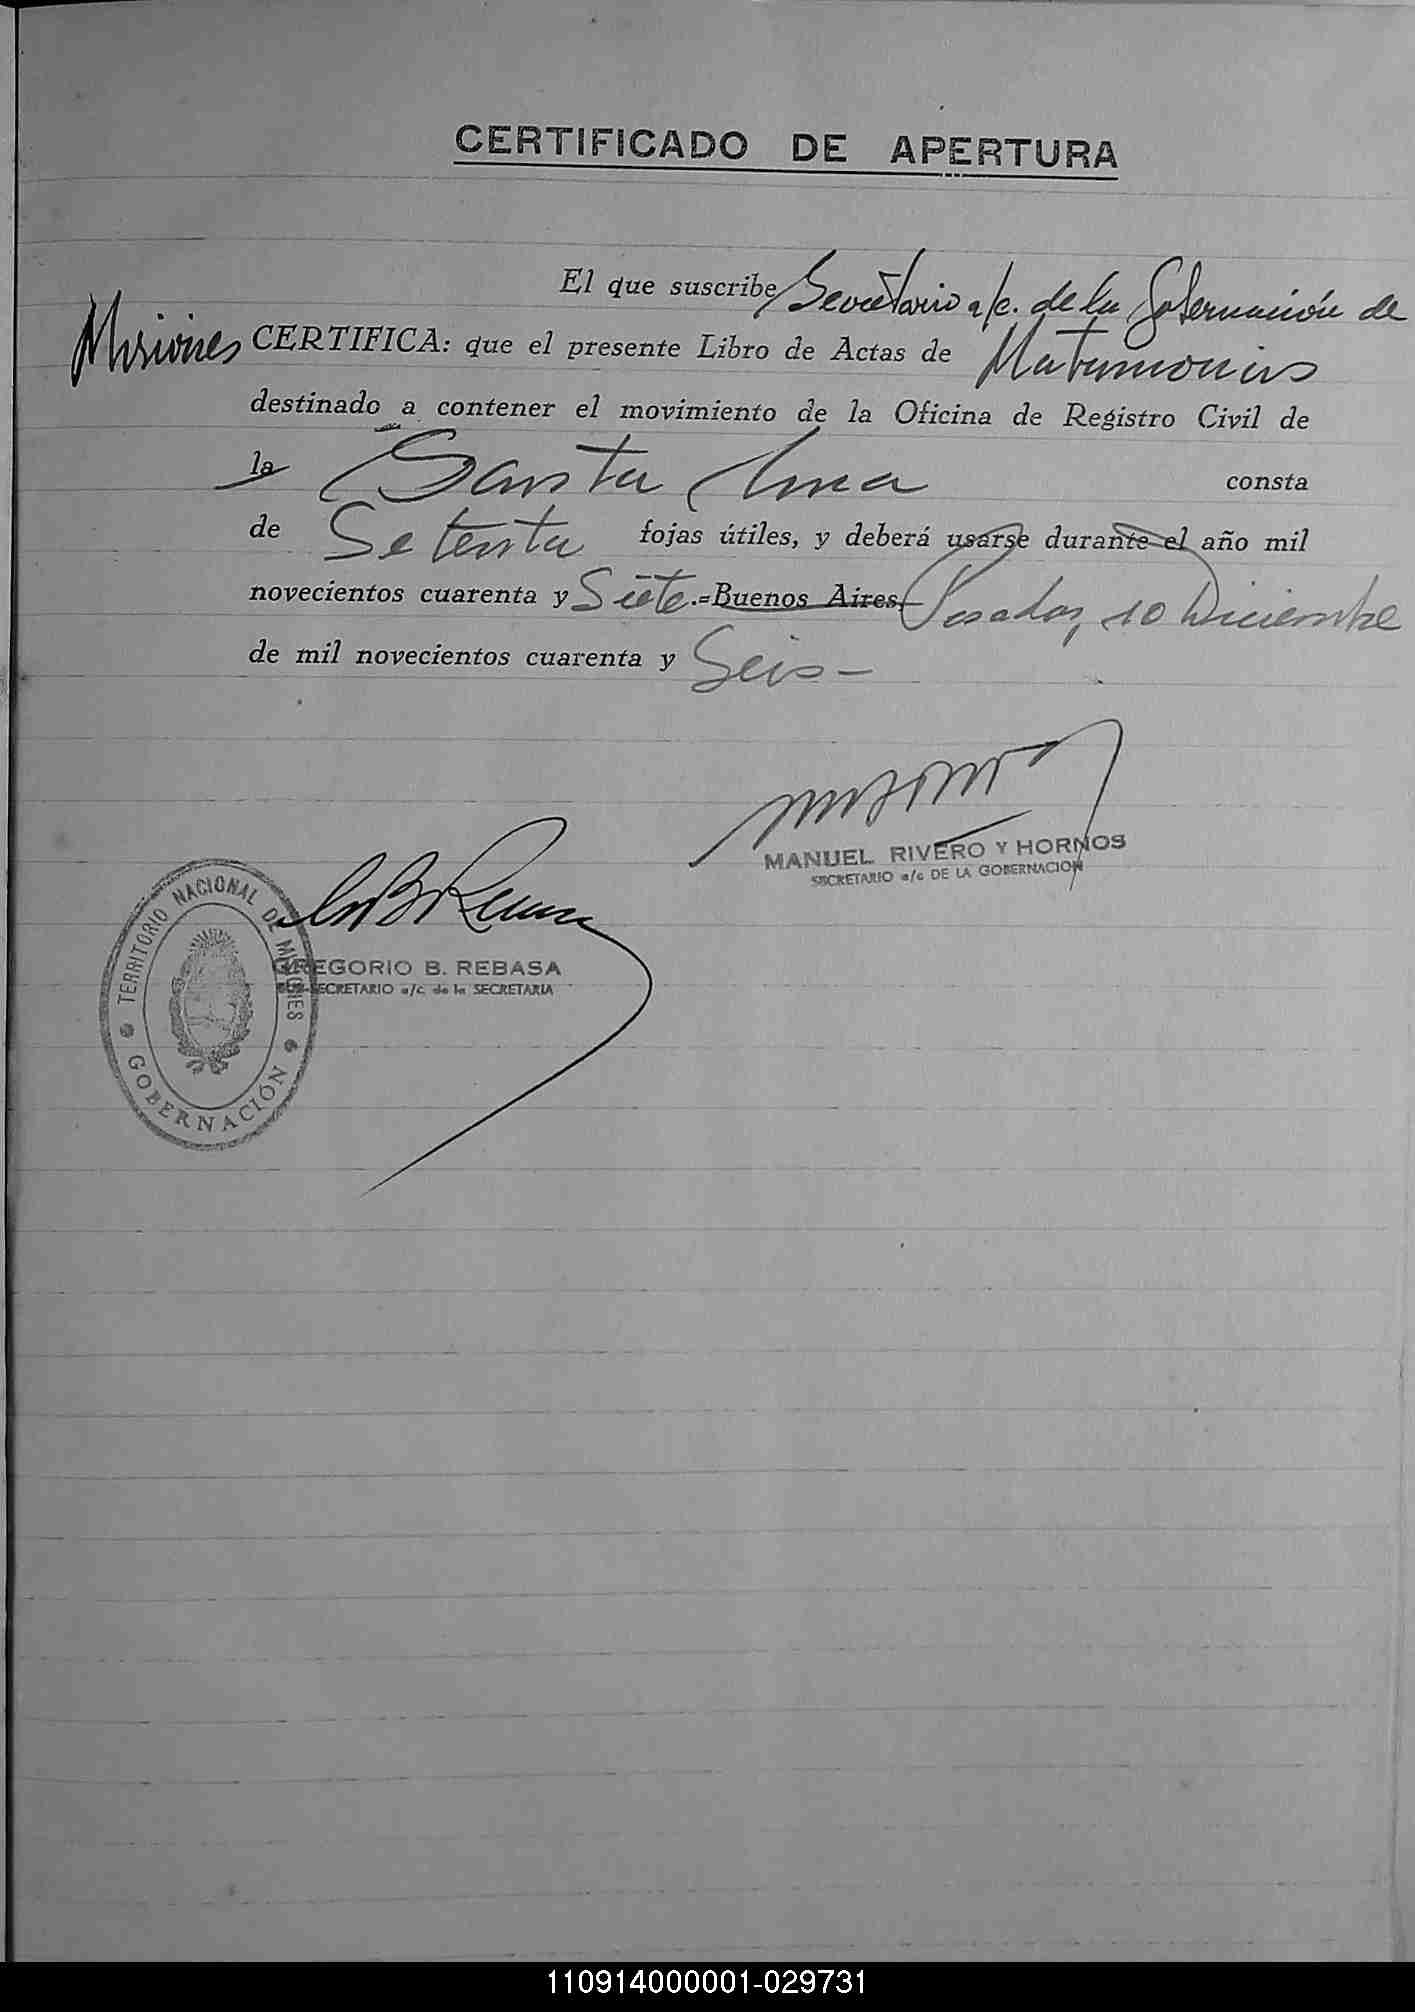 CERTIFICADO DE APERTURA
El que suscribe Secretario a/c. de la Gobernación de
Misiones CERTIFICA: que el presente Libro de Actas de Matrimonios
destinado a contener el movimiento de la Oficina de Registro Civil de
la Santa Ana consta
de Setenta fojas útiles, y deberá usarse durante el año mil
novecientos cuarenta y Siete.=Buenos Aires, Posadas, 10 Diciembre
de mil novecientos cuarenta y Seis-
MANUEL RIVERO Y HORNOS
SECRETARIO a/c DE LA GOBERNACION
GREGORIO B. REBASA
SUB-SECRETARIO a/c. de la SECRETARIA
TERRITORIO NACIONAL DE MISIONES
GOBERNACIÓN
110914000001-029731